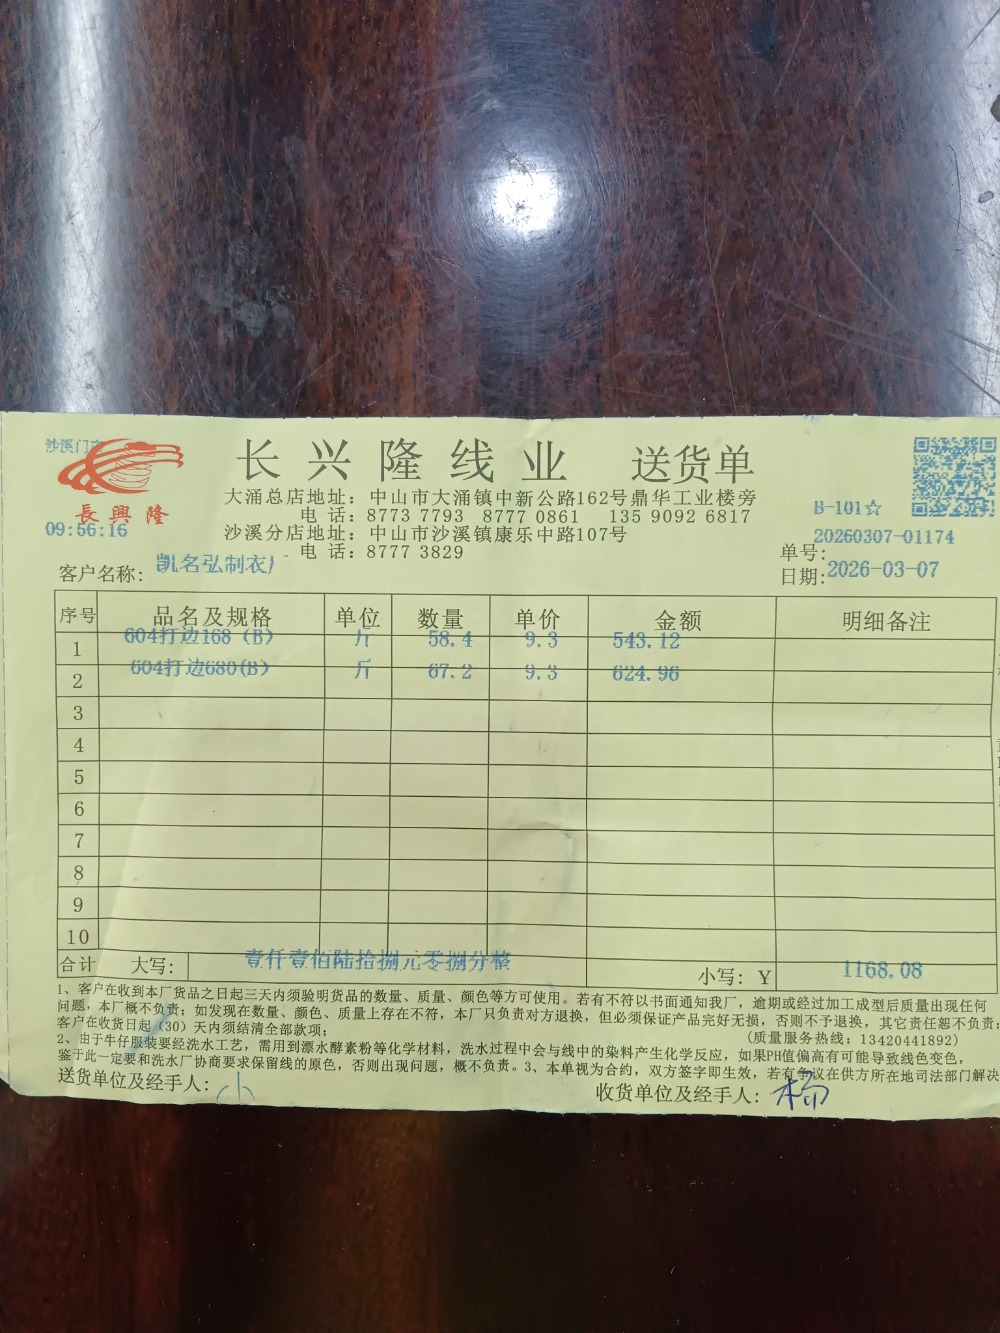 沙溪门市
長興隆
09:56:16
长兴隆线业 送货单
大涌总店地址：中山市大涌镇中新公路162号鼎华工业楼旁
电话：8773 7793 8777 0861 135 9092 6817
沙溪分店地址：中山市沙溪镇康乐中路107号
电话：8777 3829
B-101☆
单号：20260307-01174
日期：2026-03-07
客户名称：凯名弘制衣厂
序号 品名及规格 单位 数量 单价 金额 明细备注
1 604打边168 (B) 斤 58.4 9.3 543.12
2 604打边680(B) 斤 67.2 9.3 624.96
3
4
5
6
7
8
9
10
合计 大写：壹仟壹佰陆拾捌元零捌分整 小写：Y 1168.08
1、客户在收到本厂货品之日起三天内须验明货品的数量、质量、颜色等方可使用。若有不符以书面通知我厂，逾期或经过加工成型后质量出现任何
问题，本厂概不负责；如发现在数量、颜色、质量上存在不符，本厂只负责对方退换，但必须保证产品完好无损，否则不予退换，其它责任恕不负责；
客户在收货日起（30）天内须结清全部款项；
（质量服务热线：13420441892）
2、由于牛仔服装要经洗水工艺，需用到漂水酵素粉等化学材料，洗水过程中会与线中的染料产生化学反应，如果PH值偏高有可能导致线色变色，
鉴于此一定要和洗水厂协商要求保留线的原色，否则出现问题，概不负责。3、本单视为合约，双方签字即生效，若有争议在供方所在地司法部门解决
送货单位及经手人：小
收货单位及经手人：杨